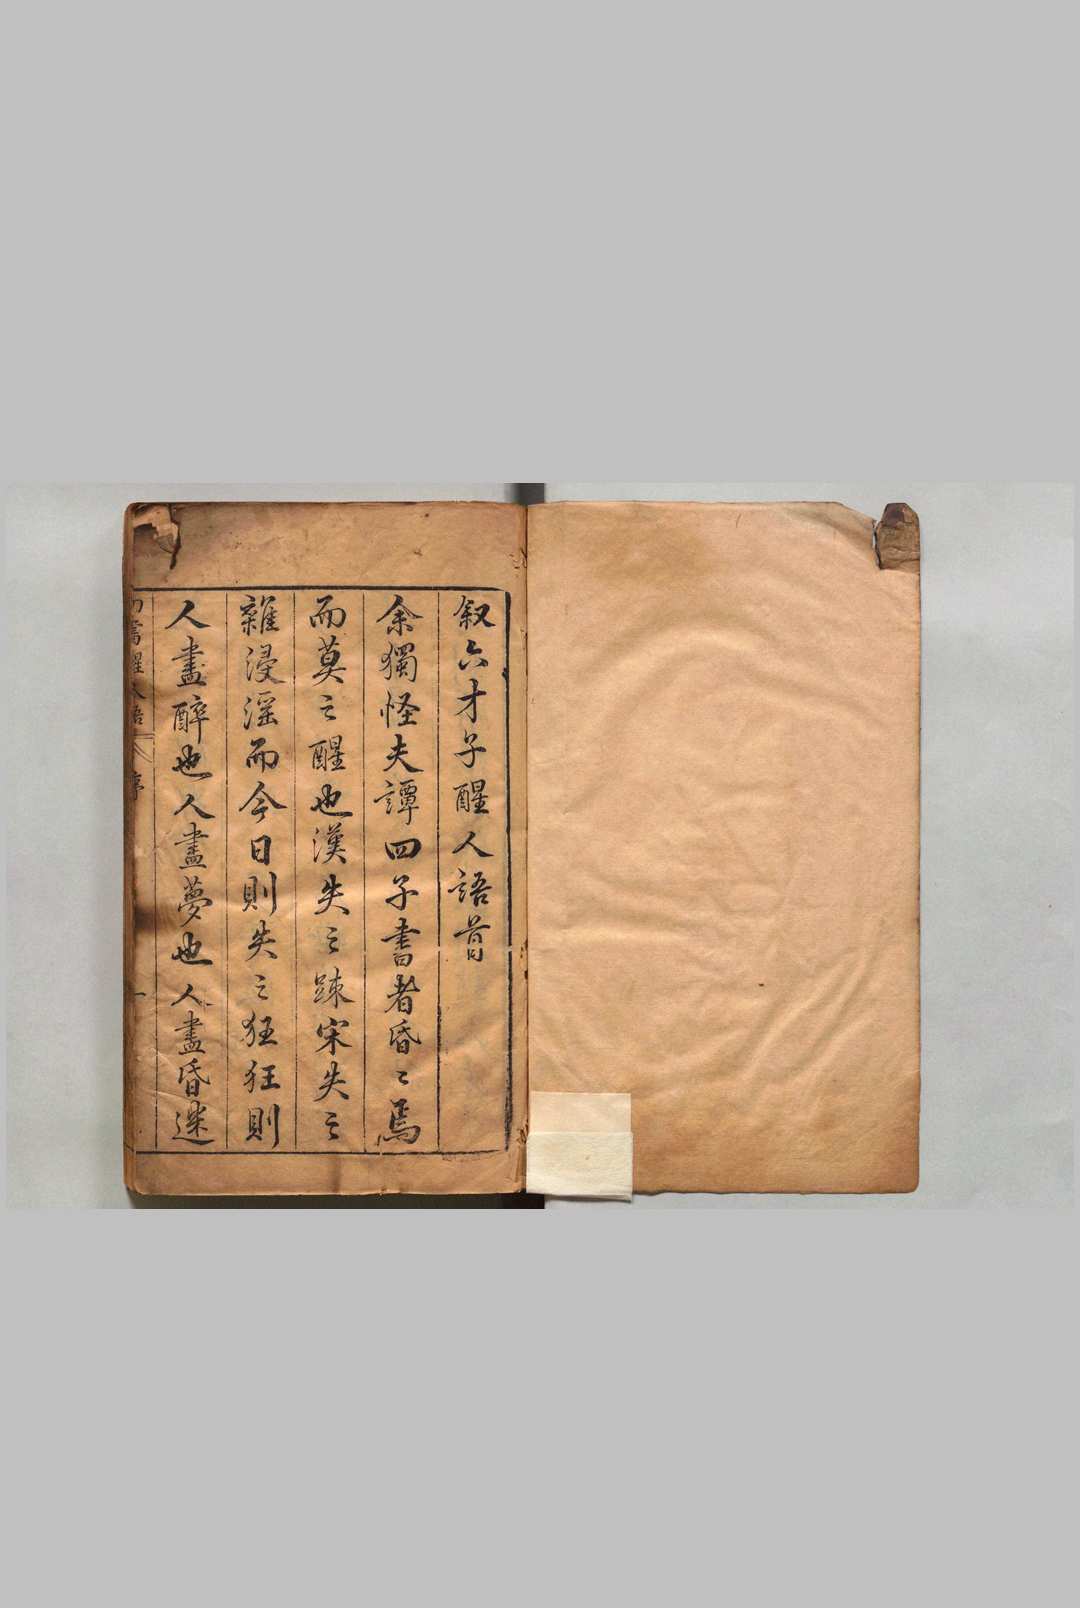 叙六才子醒人語首
余獨怪夫譚四子書者昏〻焉
而莫之醒也漢失之踈宋失之
雜浸淫而今日則失之狂狂則
人盡醉也人盡夢也人盡昏迷
四書醒人語 序 一